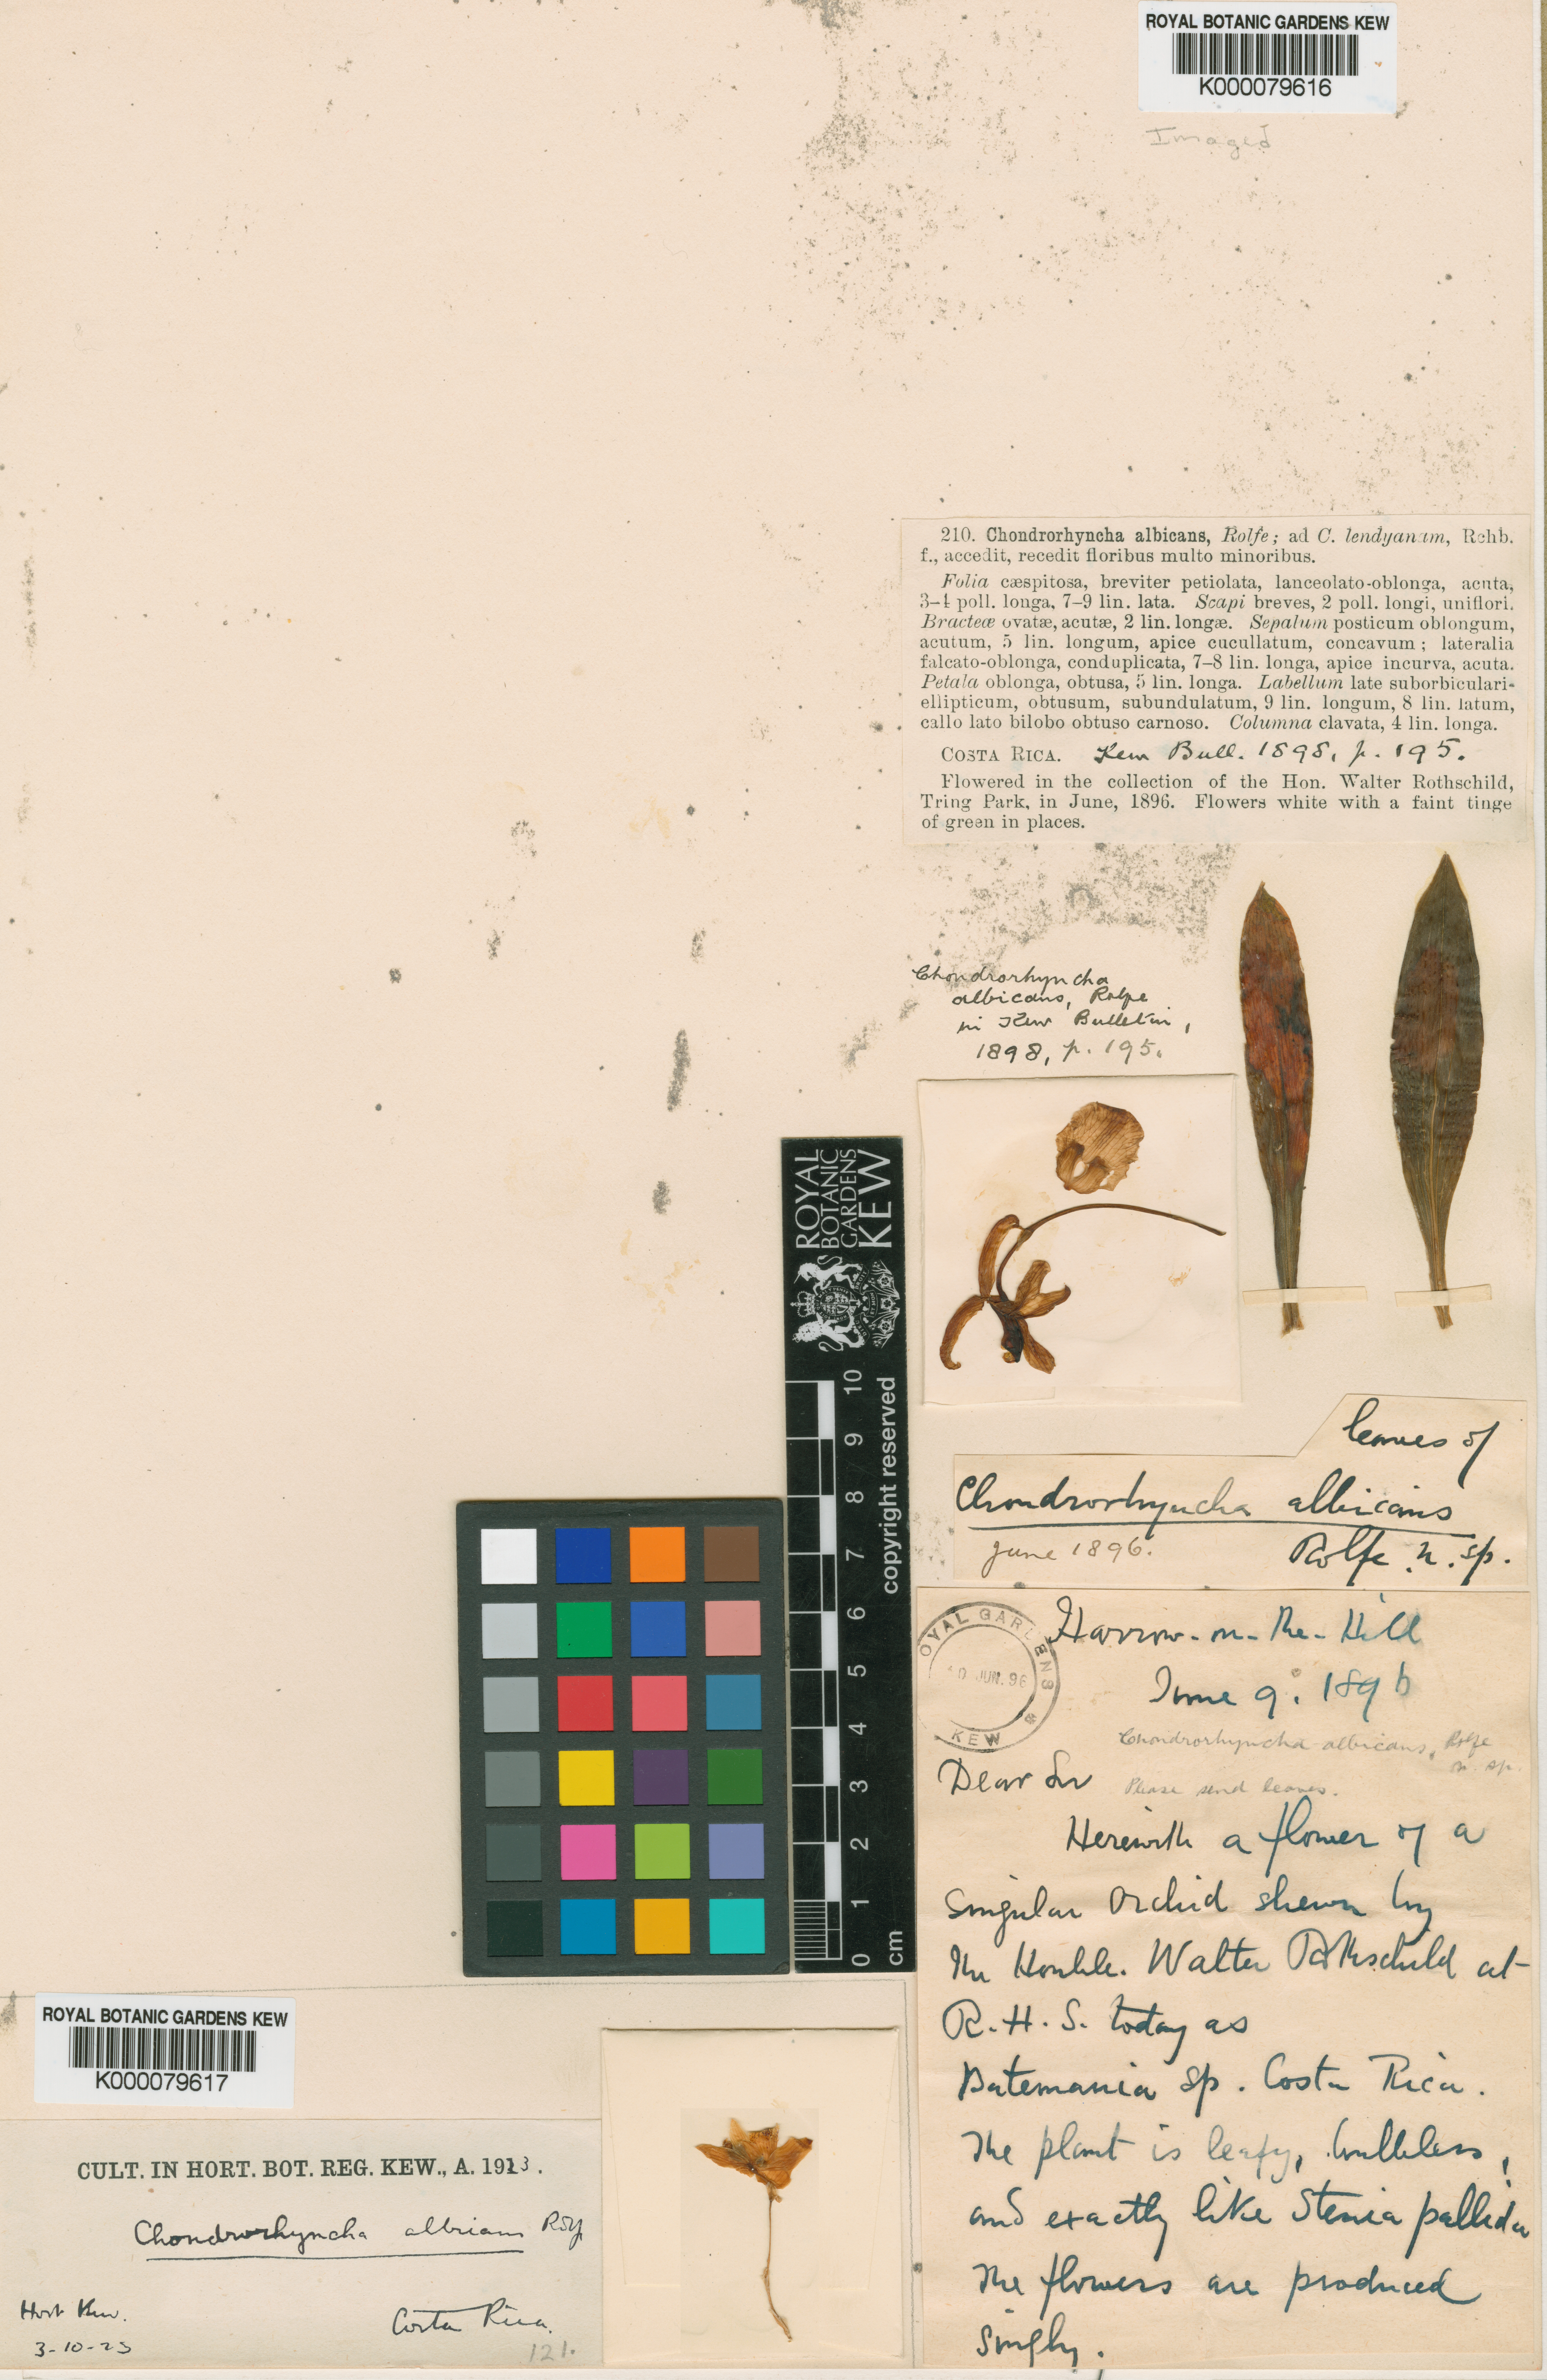 ROYAL BOTANIC GARDENS KEW
K000079616
Imaged
210. Chondrorhyncha albicans, Rolfe; ad C. lendyanam, Rchb.
f., accedit, recedit floribus multo minoribus.
Folia cæspitosa, breviter petiolata, lanceolato-oblonga, acuta,
3-4 poll. longa, 7-9 lin. lata. Scapi breves, 2 poll. longi, uniflori.
Bracteæ ovatæ, acutæ, 2 lin. longæ. Sepalum posticum oblongum,
acutum, 5 lin. longum, apice cucullatum, concavum; lateralia
falcato-oblonga, conduplicata, 7-8 lin. longa, apice incurva, acuta.
Petala oblonga, obtusa, 5 lin. longa. Labellum late suborbiculari-
ellipticum, obtusum, subundulatum, 9 lin. longum, 8 lin. latum,
callo lato bilobo obtuso carnoso. Columna clavata, 4 lin. longa.
COSTA RICA. Kew Bull. 1898, p. 195.
Flowered in the collection of the Hon. Walter Rothschild,
Tring Park, in June, 1896. Flowers white with a faint tinge
of green in places.
Chondrorhyncha
albicans, Rolfe
in Kew Bulletin,
1898, p. 195.
ROYAL
BOTANIC
GARDENS
KEW
10 9 8 7 6 5 4 3 2 1 0 cm
copyright reserved
leaves of
Chondrorhyncha albicans
June 1896. Rolfe. n. sp.
ROYAL GARDENS
10 JUN. 96
KEW
Harrow-on-the-Hill
June 9. 1896
Chondrorhyncha albicans, Rolfe
n. sp.
Dear Sir Please send leaves.
Herewith a flower of a
singular Orchid shewn by
the Honble. Walter Rothschild at
R.H.S. today as
Batemania sp. Costa Rica.
The plant is leafy, bulbless,
and exactly like Stenia pallida
The flowers are produced
singly.
ROYAL BOTANIC GARDENS KEW
K000079617
CULT. IN HORT. BOT. REG. KEW., A. 1923.
Chondrorhyncha albicans Rolfe
Hort Kew. Costa Rica.
3-10-23 121.